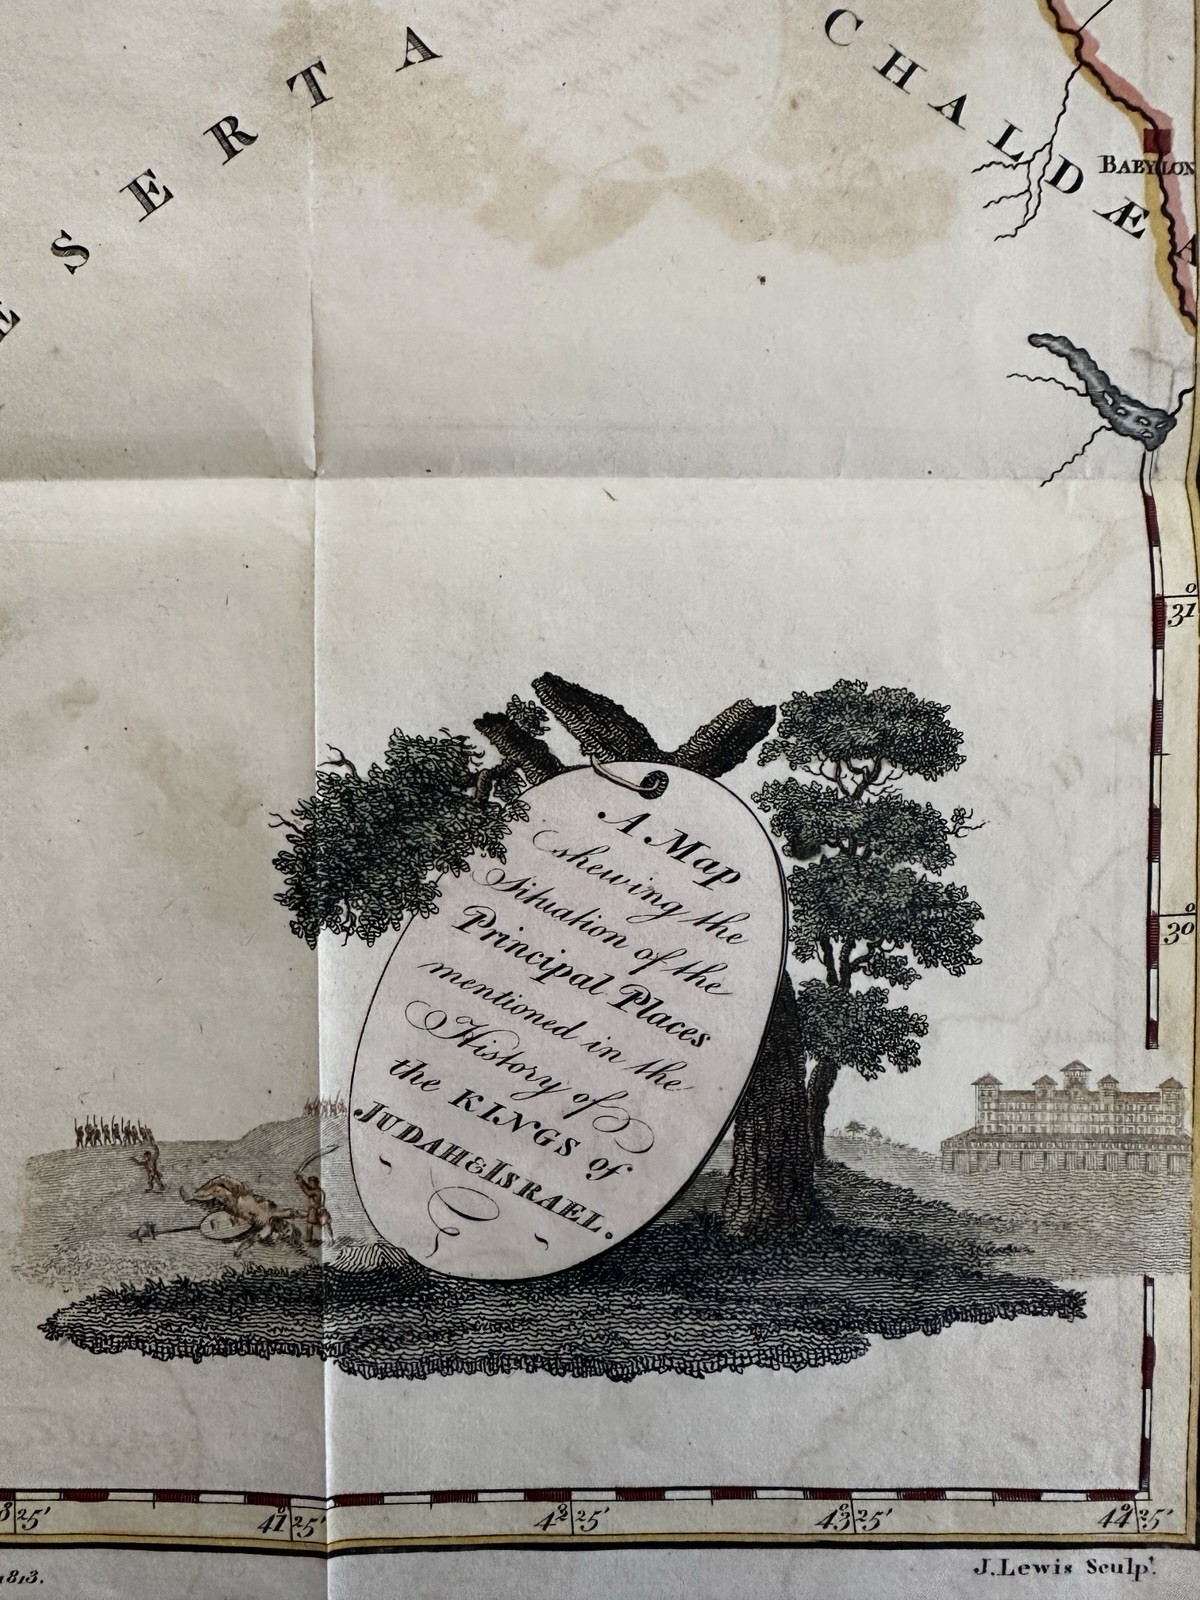 ESERTA
CHALDÆA
BABYLON
31°
A Map
shewing the
Situation of the
Principal Places
mentioned in the
History of
the KINGS of
JUDAH & ISRAEL.
30°
25' 41° 25' 42° 25' 43° 25' 44° 25'
1813.
J. Lewis Sculpt.